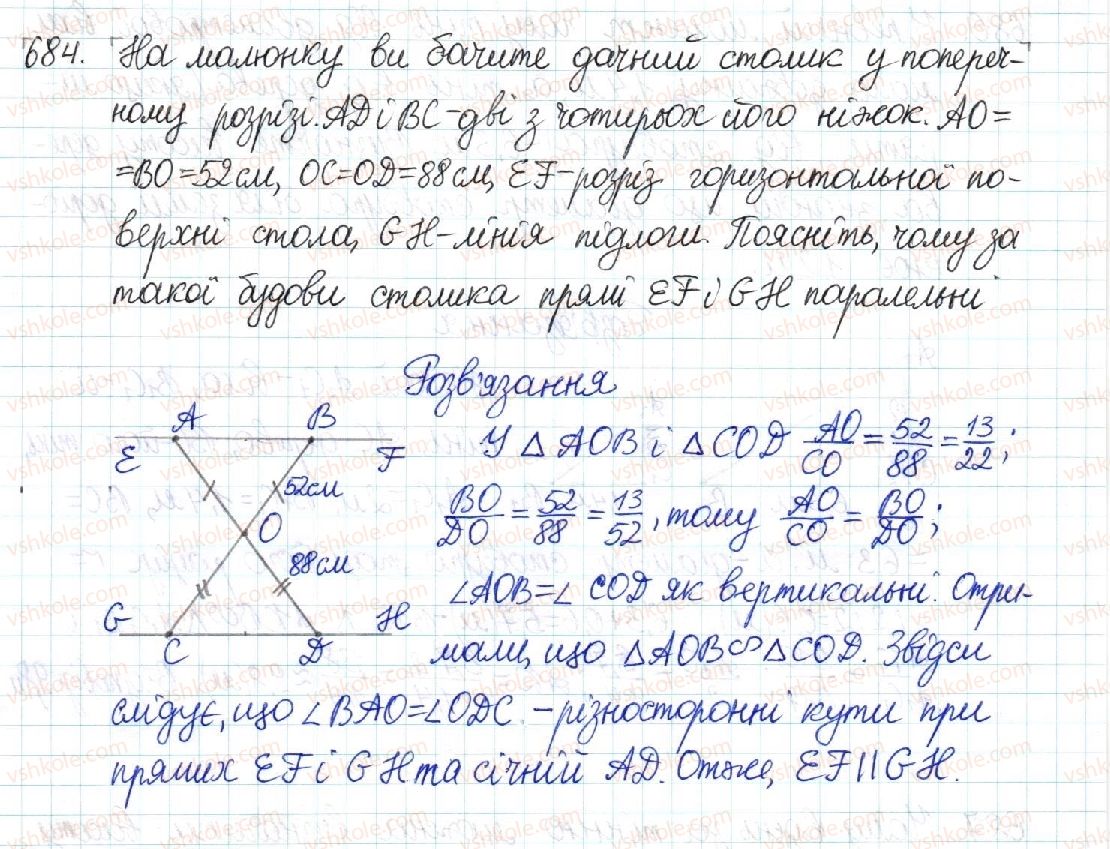 684. На малюнку ви бачите дачний столик у попереч-
ному розрізі. AD і BC - дві з чотирьох його ніжок. AO=
=BO=52см, OC=OD=88см, EF-розріз горизонтальної по-
верхні стола, GH-лінія підлоги. Поясніть, чому за
такої будови столика прямі EF і GH паралельні
Розв'язання
A B
E F
52см
O
88см
G H
C D
У △AOB і △COD AO/CO = 52/88 = 13/22;
BO/DO = 52/88 = 13/52, тому AO/CO = BO/DO;
∠AOB=∠COD як вертикальні. Отри-
мали, що △AOB∽△COD. Звідси
слідує, що ∠BAO=∠ODC. - різносторонні кути при
прямих EF і GH та січній AD. Отже, EF||GH.